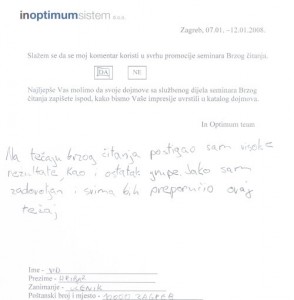 inoptimumsistem d.o.o.
Zagreb, 07.01. -12.01.2008.
Slažem se da se moj komentar koristi u svrhu promocije seminara Brzog čitanja.
DA NE
Najljepše Vas molimo da svoje dojmove sa službenog dijela seminara Brzog
čitanja zapišete ispod, kako bismo Vaše impresije uvrstili u katalog dojmova.
In Optimum team
Na tečaju brzog čitanja postigao sam visoke
rezultate, kao i ostatak grupe. Jako sam
zadovoljan i svima bih preporučio ovaj
tečaj
Ime -
Prezime -
Zanimanje - UČENIK
Poštanski broj i mjesto - 10000 ZAGREB